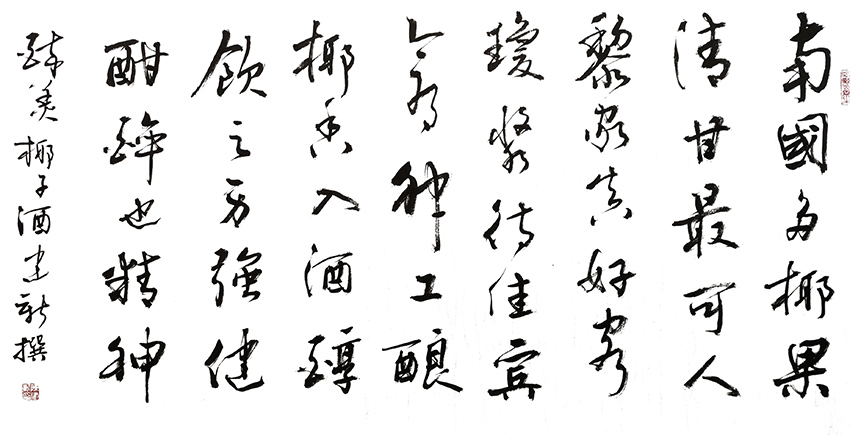 南國多椰果
清甘最可人
黎家真好客
瓊漿待佳宾
今有神工酿
椰香入酒醇
飲之身強健
酣醉也精神
醉美椰子酒建新撰